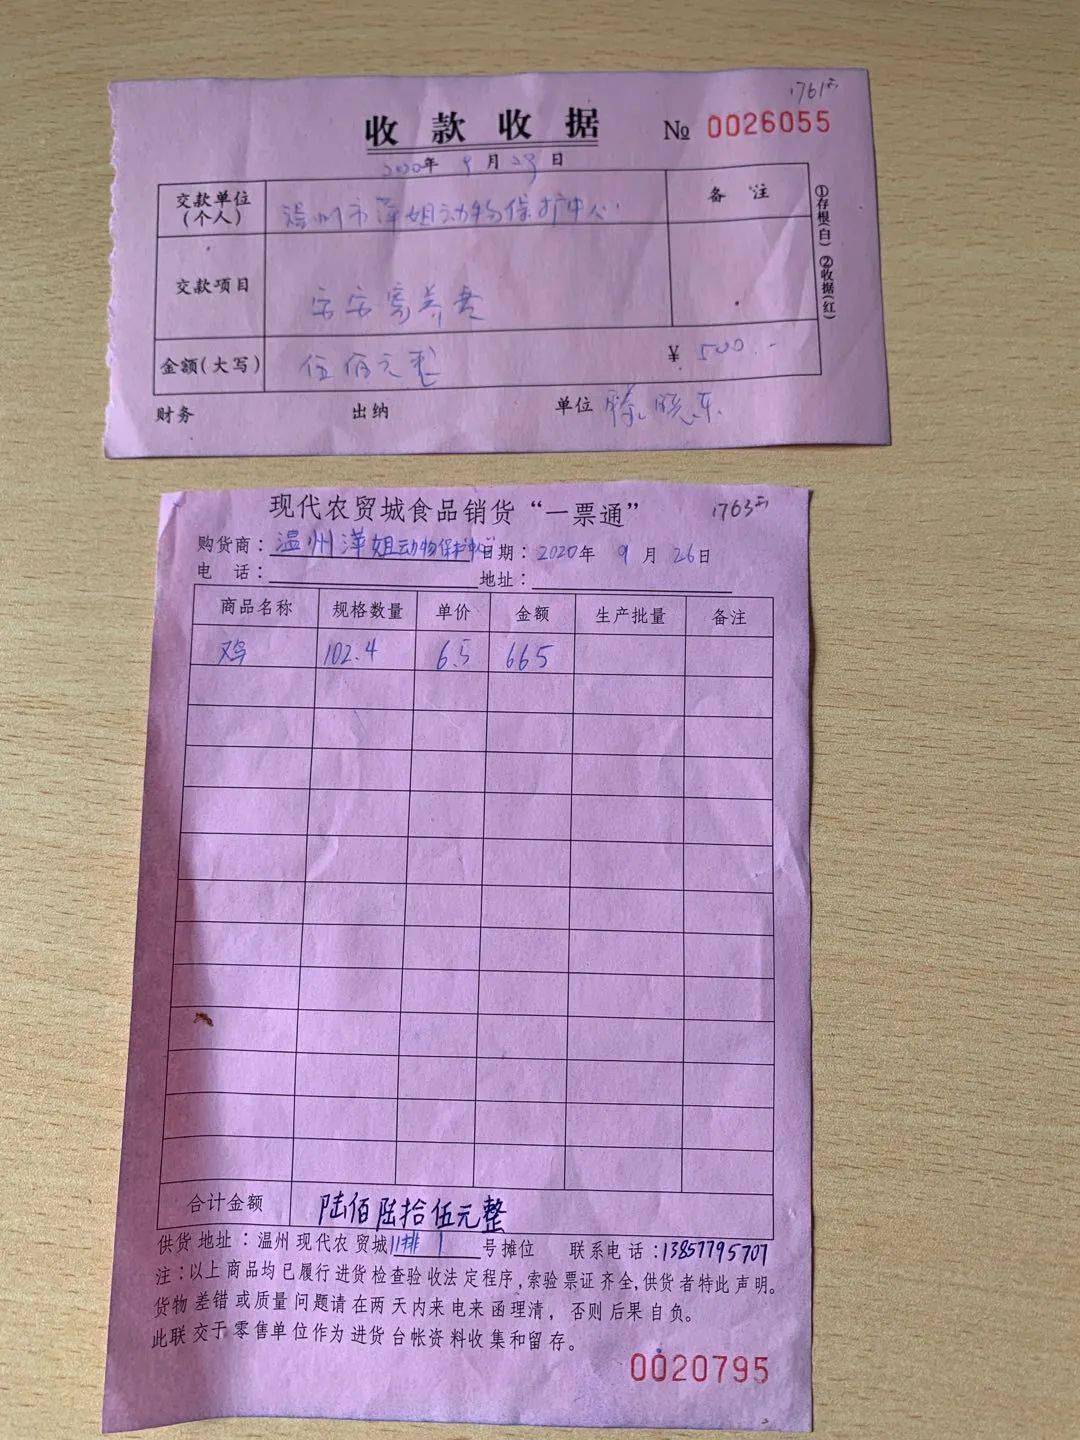 1761
收款收据 № 0026055
2020年 9月 23日
交款单位(个人) 温州市萍姐动物保护中心 备注
交款项目 安安寄养费
金额(大写) 伍佰元整 ¥ 500.-
财务 出纳 单位 滕晓东
①存根(白) ②收据(红)
现代农贸城食品销货“一票通” 1763
购货商: 温州萍姐动物保护中心 日期: 2020年 9月 26日
电话: 地址:
商品名称 规格数量 单价 金额 生产批量 备注
鸡 102.4 6.5 665
合计金额 陆佰陆拾伍元整
供货地址:温州现代农贸城11排 1 号摊位 联系电话:13857795707
注:以上商品均已履行进货检查验收法定程序,索验票证齐全,供货者特此声明。
货物差错或质量问题请在两天内来电来函理清,否则后果自负。
此联交于零售单位作为进货台帐资料收集和留存。
0020795